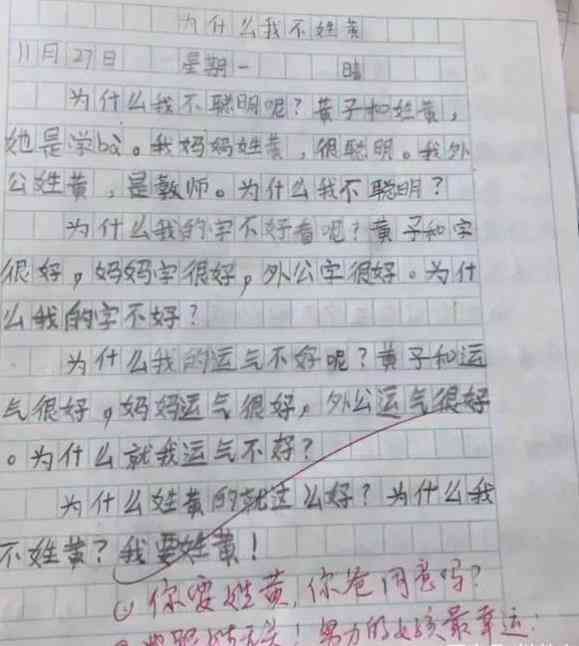 为什么我不姓黄
11月27日 星期一 晴
为什么我不聪明呢？黄子和姓黄，
她是学bà。我妈妈姓黄，很聪明。我外
公姓黄，是教师。为什么我不聪明？
为什么我的字不好看呢？黄子和字
很好，妈妈字很好，外公字很好。为什
么我的字不好？
为什么我的运气不好呢？黄子和运
气很好，妈妈运气很好，外公运气很好
。为什么就我运气不好？
为什么姓黄的就这么好？为什么我
不姓黄？我要姓黄！
你要姓黄，你爸同意吗？
努力的女孩最幸运